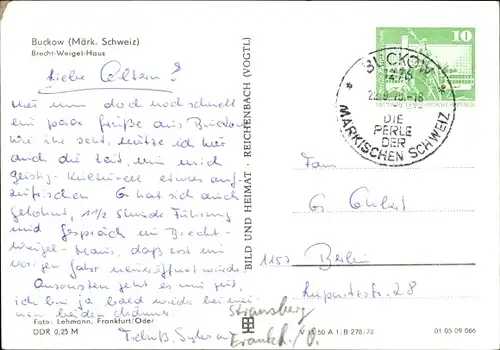 Buckow (Märk. Schweiz)
Brecht-Weigel-Haus
Liebe Eltern!
nun doch noch schnell
ein paar Grüße aus Buckow.
Wie ihr seht, nütze ich hier
auch die Zeit, um mich
geistig-kulturell etwas auf-
zufrischen. Es hat sich auch
gelohnt, 1 1/2 Stunde Führung
und Gespräch im Brecht-
Weigel-Haus, daß erst im
vorigen Jahr neueröffnet wurde.
Ansonsten geht es mir gut,
ich bin ja bald wieder bei
nen beiden
Tschüß, Sylvia
Foto: Lehmann, Frankfurt/Oder
DDR 0,25 M
BILD UND HEIMAT · REICHENBACH (VOGTL)
10
BUCKOW
1276
DIE
PERLE
DER
MÄRKISCHEN SCHWEIZ
Fam.
G.
1157 Berlin
28
Strausberg
Frankf./O.
V 11 50 A 1 B 278/78
01 05 09 066